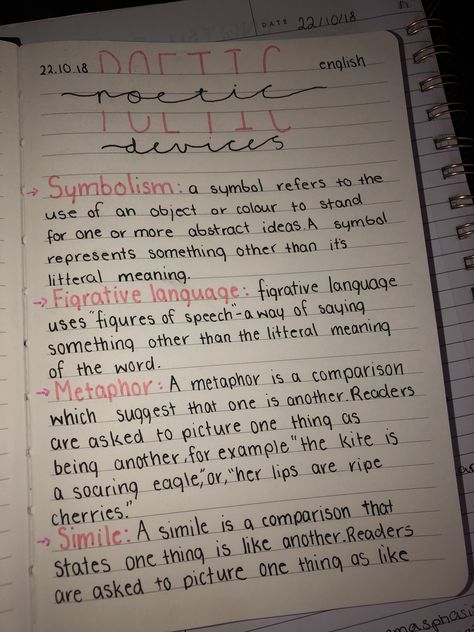 DATE 22/10/18
22.10.18 POETIC english
poetic
devices
→ Symbolism: a symbol refers to the
use of an object or colour to stand
for one or more abstract ideas. A symbol
represents something other than it's
litteral meaning.
→ Figrative language: figrative language
uses "figures of speech"- a way of saying
something other than the litteral meaning
of the word.
→ Metaphor: A metaphor is a comparison
which suggest that one is another. Readers
are asked to picture one thing as
being another, for example "the kite is
a soaring eagle," or, "her lips are ripe
cherries."
→ Simile: A simile is a comparison that
states one thing is like another. Readers
are asked to picture one thing as like